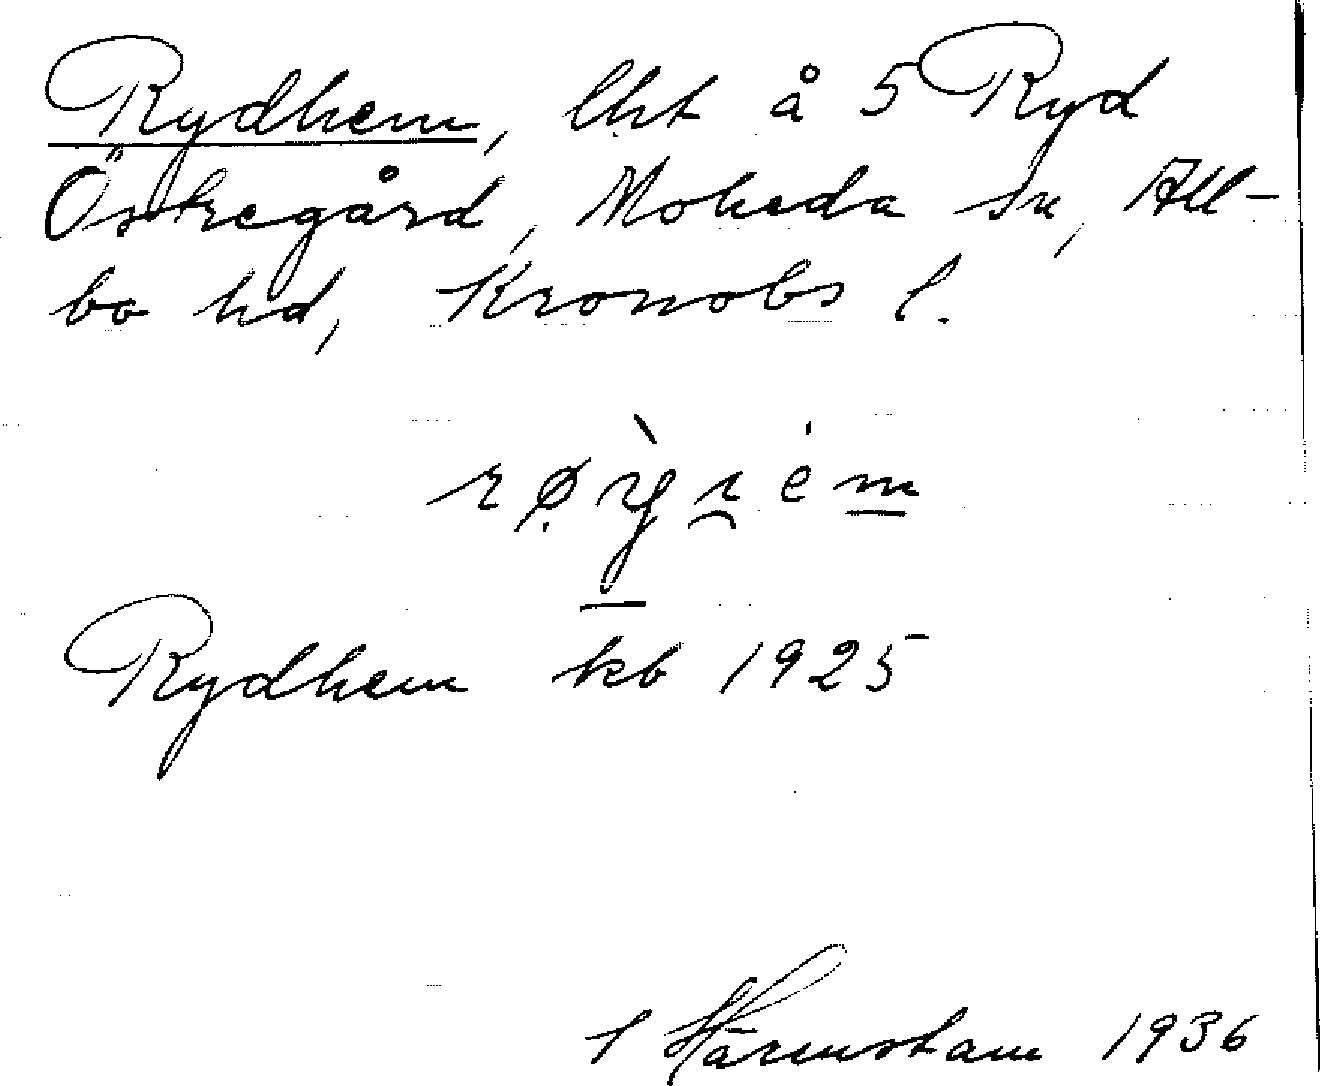 Rydhem, lht å 5 Ryd
Östregård, Moheda sn, All-
bo hd, Kronobs l.
Rydhem kb 1925
Härenstam 1936